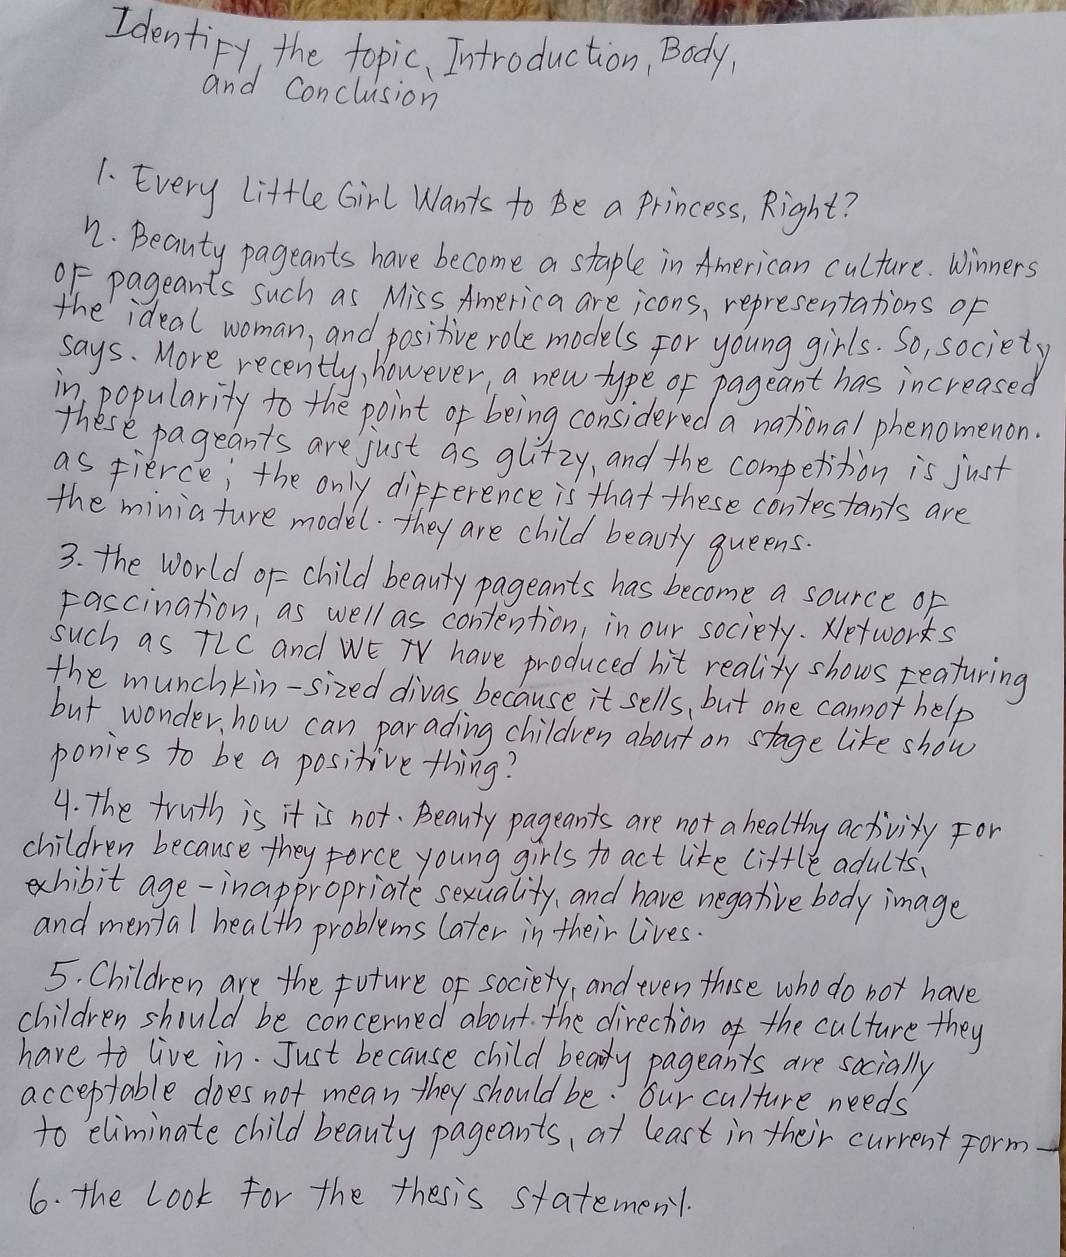 Identify, the topic, Introduction, Body,
and Conclusion
1. Every Little Girl Wants to Be a Princess, Right?
2. Beauty pageants have become a staple in American culture. Winners
of pageants such as Miss America are icons, representations of
the ideal woman, and positive role models for young girls. So, society
says. More recently, however, a new type of pageant has increased
in popularity to the point of being considered a national phenomenon.
These pageants are just as glitzy, and the competition is just
as fierce; the only difference is that these contestants are
the miniature model. they are child beauty queens.
3. the World of child beauty pageants has become a source of
Fascination, as well as contention, in our society. Networks
such as TLC and WE TV have produced hit reality shows featuring
the munchkin-sized divas because it sells, but one cannot help
but wonder, how can parading children about on stage like show
ponies to be a positive thing?
4. The truth is it is not. Beauty pageants are not a healthy activity For
children because they force young girls to act like little adults,
exhibit age-inappropriate sexuality, and have negative body image
and mental health problems later in their lives.
5. Children are the future of society, and even those who do not have
children should be concerned about the direction of the culture they
have to live in. Just because child beauty pageants are socially
acceptable does not mean they should be. Our culture needs
to eliminate child beauty pageants, at least in their current form-
6. the Look For the thesis statement.